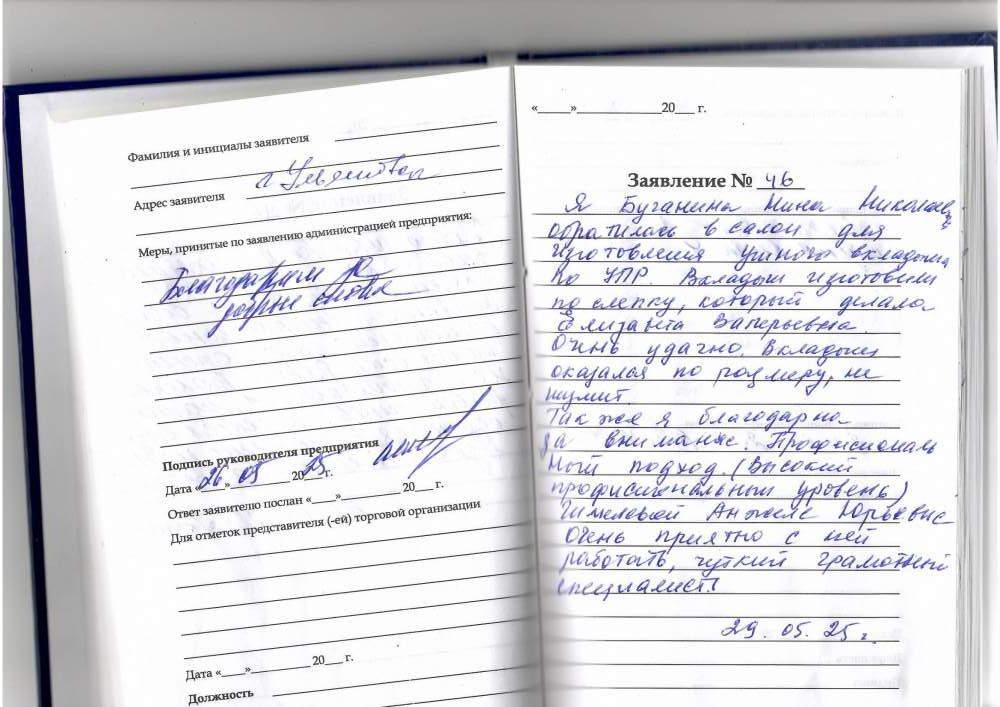 Фамилия и инициалы заявителя
Адрес заявителя г Ульяновск
Меры, принятые по заявлению администрацией предприятия:
Благодарим за
добрые слова
Подпись руководителя предприятия
Дата «26» 05 2025 г.
Ответ заявителю послан «____»__________ 20___ г.
Для отметок представителя (-ей) торговой организации
Дата «____»__________ 20___ г.
Должность
«_____»_____________20___ г.
Заявление № 46
Я Буганина Нина Николаевна
обратилась в салон для
изготовления Ушного вкладыша
по УПР. Вкладыш изготовили
по слепку, который делала
Елизавета Валерьевна.
Очень удачно. Вкладыш
оказался по размеру, не
шумит.
Так же я благодарна
за внимание. Профисиональ
ный подход. (Высокий
профисиональный уровень)
Анжеле Юрьевне
Очень приятно с ней
работать, чуткий грамотный
специалист!
29. 05. 25 г.